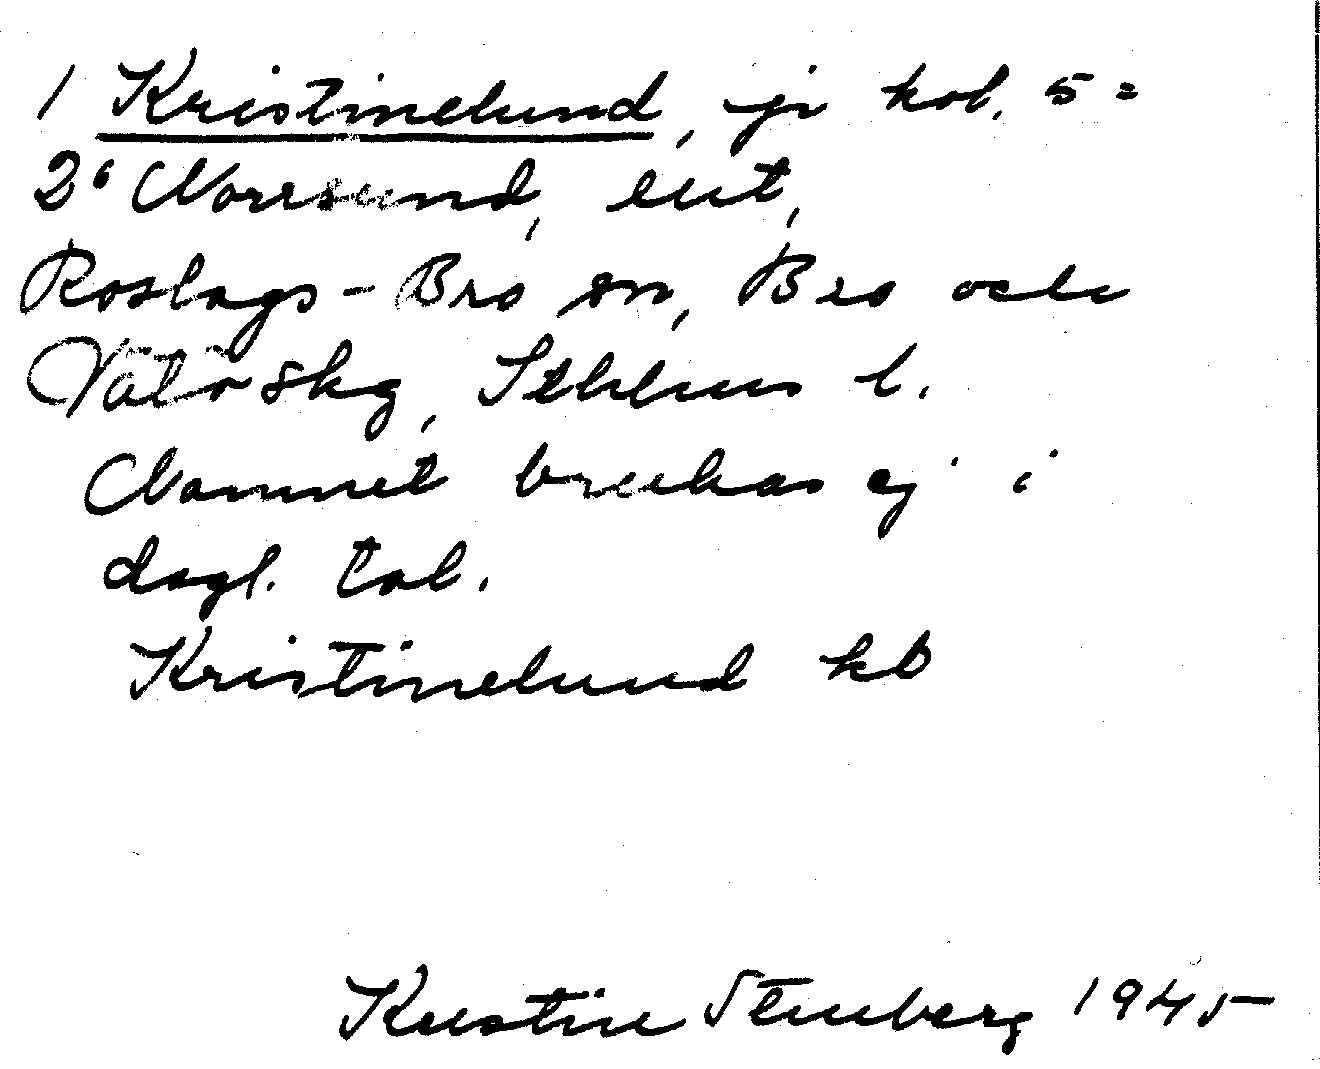 1 Kristinelund, ji kol. 5 =
2⁶ Norrsund, ent,
Roslags-Bro sn, Bro och
Vätö skg, Sthlms l.
Namnet brukas ej i
dagl. tal.
Kristinelund kb
Kerstin Stenberg 1945